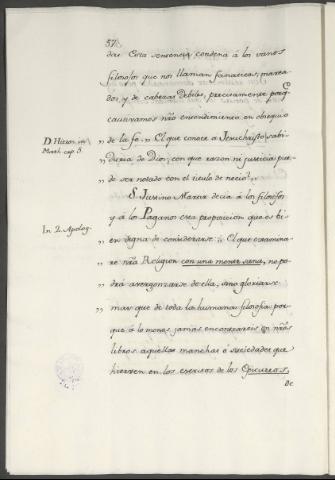 57.
dir. Esta sentencia condena á los vanos
filosofos que nos llaman fanaticos, marea-
dos, y de cabezas debiles, precisamente porq.
cautivamos nro entendimiento en obsequio
D. Hieron. in
Math. cap. 5.
„ de la fe. „ El que conoce á Jesuchristo, sabi-
„ duria de Dios, con que razon ni justicia, pue-
„ de ser notado con el titulo de necio?„
S. Justino Martir decia á los filosofos
In 2. Apolog.
y á los Paganos esta proposicion que es bi-
en digna de considerarse: „ El que examina-
„ re nra Religion con una mente sana, no po-
„ drá avergonzarse de ella, sino gloriarse
„ mas que de toda la humana filosofia: por
„ que á lo menos jamas encontrareis en nros
„ libros aquellas manchas ó suciedades que
„ hierven en los escritos de los Epicureos,
De